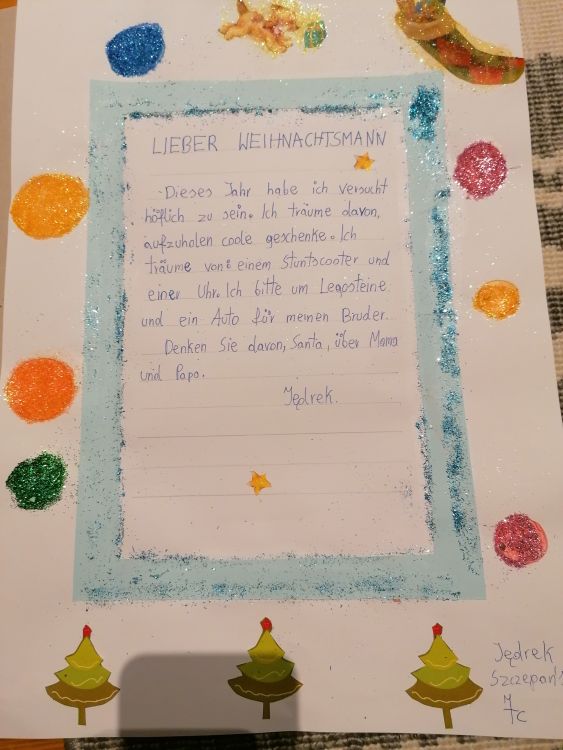 LIEBER WEIHNACHTSMANN
Dieses Jahr habe ich versucht
höflich zu sein. Ich träume davon,
aufzuholen coole geschenke. Ich
träume von: einem Stuntscooter und
einer Uhr. Ich bitte um Legosteine
und ein Auto für meinen Bruder.
Denken Sie davon, Santa, über Mama
und Papa.
Jędrek.
Jędrek